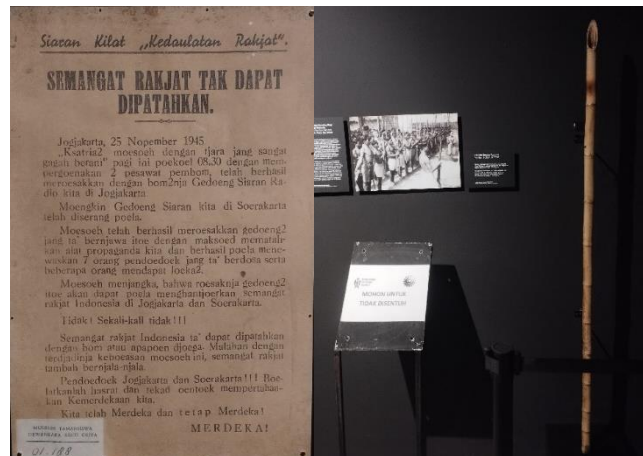 Siaran Kilat „Kedaulatan Rakjat".
SEMANGAT RAKJAT TAK DAPAT
DIPATAHKAN.
Jogjakarta, 25 Nopember 1945
„Ksatria2 moesoeh dengan tjara jang sangat
gagah berani" pagi ini poekoel 08.30 dengan mem-
pergoenakan 2 pesawat pembom, telah berhasil
meroesakkan dengan bom2nja Gedoeng Siaran Ra-
dio kita di Jogjakarta.
Moengkin Gedoeng Siaran kita di Soerakarta
telah diserang poela.
Moesoeh telah berhasil meroesakkan gedoeng2
jang ta' bernjawa itoe dengan maksoed mematah-
kan alat propaganda kita dan berhasil poela mene-
waskan 7 orang pendoedoek jang ta' berdosa serta
beberapa orang mendapat loeka2.
Moesoeh menjangka, bahwa roesaknja gedoeng2
itoe akan dapat poela menghantjoerkan semangat
rakjat Indonesia di Jogjakarta dan Soerakarta.
Tidak! Sekali-kali tidak!!!
Semangat rakjat Indonesia ta' dapat dipatahkan
dengan bom atau apapoen djoega. Malahan dengan
terdjadinja keboeasan moesoeh ini, semangat rakjat
tambah bernjala-njala.
Pendoedoek Jogjakarta dan Soerakarta!!! Boe-
latkanlah hasrat dan tekad oentoek mempertahan-
kan Kemerdekaan kita.
Kita telah Merdeka dan tetap Merdeka!
MERDEKA!
MUSEUM TAMANSISWA
DEWANTARA KIRTI GRIYA
01.188
MOHON UNTUK
TIDAK DISENTUH